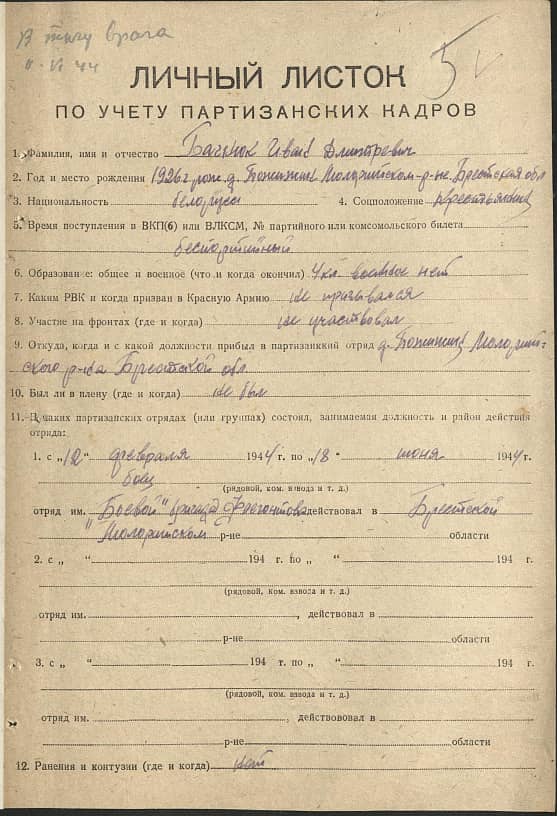 В тылу врага
5
ЛИЧНЫЙ ЛИСТОК
ПО УЧЕТУ ПАРТИЗАНСКИХ КАДРОВ
1. Фамилия, имя и отчество Иван Дмитревич
2. Год и место рождения 1926 г рож. д. Моларитском р-не Брестская обл
3. Национальность белорусс 4. Соцположение Крестьянин
5. Время поступления в ВКП(б) или ВЛКСМ, № партийного или комсомольского билета
беспартийный
6. Образование: общее и военное (что и когда окончил) 4 кл. военное нет
7. Каким РВК и когда призван в Красную Армию не призывался
8. Участие на фронтах (где и когда) не участвовал
9. Откуда, когда и с какой должности прибыл в партизанкий отряд д.
ского р-на Брестской обл
10. Был ли в плену (где и когда) не был
11. В каких партизанских отрядах (или группах) состоял, занимаемая должность и район действия
отряда:
1. с „12“ февраля 1944 г. по „18“ июня 1944 г.
боец
(рядовой, ком. взвода и т. д.)
отряд им. "Боевой" бригада действовал в Брестской
р-не области
2. с „ “ 194 г. по „ “ 194 г.
(рядовой, ком. взвода и т. д.)
отряд им. , действовал в
р-не области
3. с „ “ 194 г. по „ “ 194 г.
(рядовой, ком. взвода и т. д.)
отряд им. , действововал в
р-не области
12. Ранения и контузии (где и когда) нет